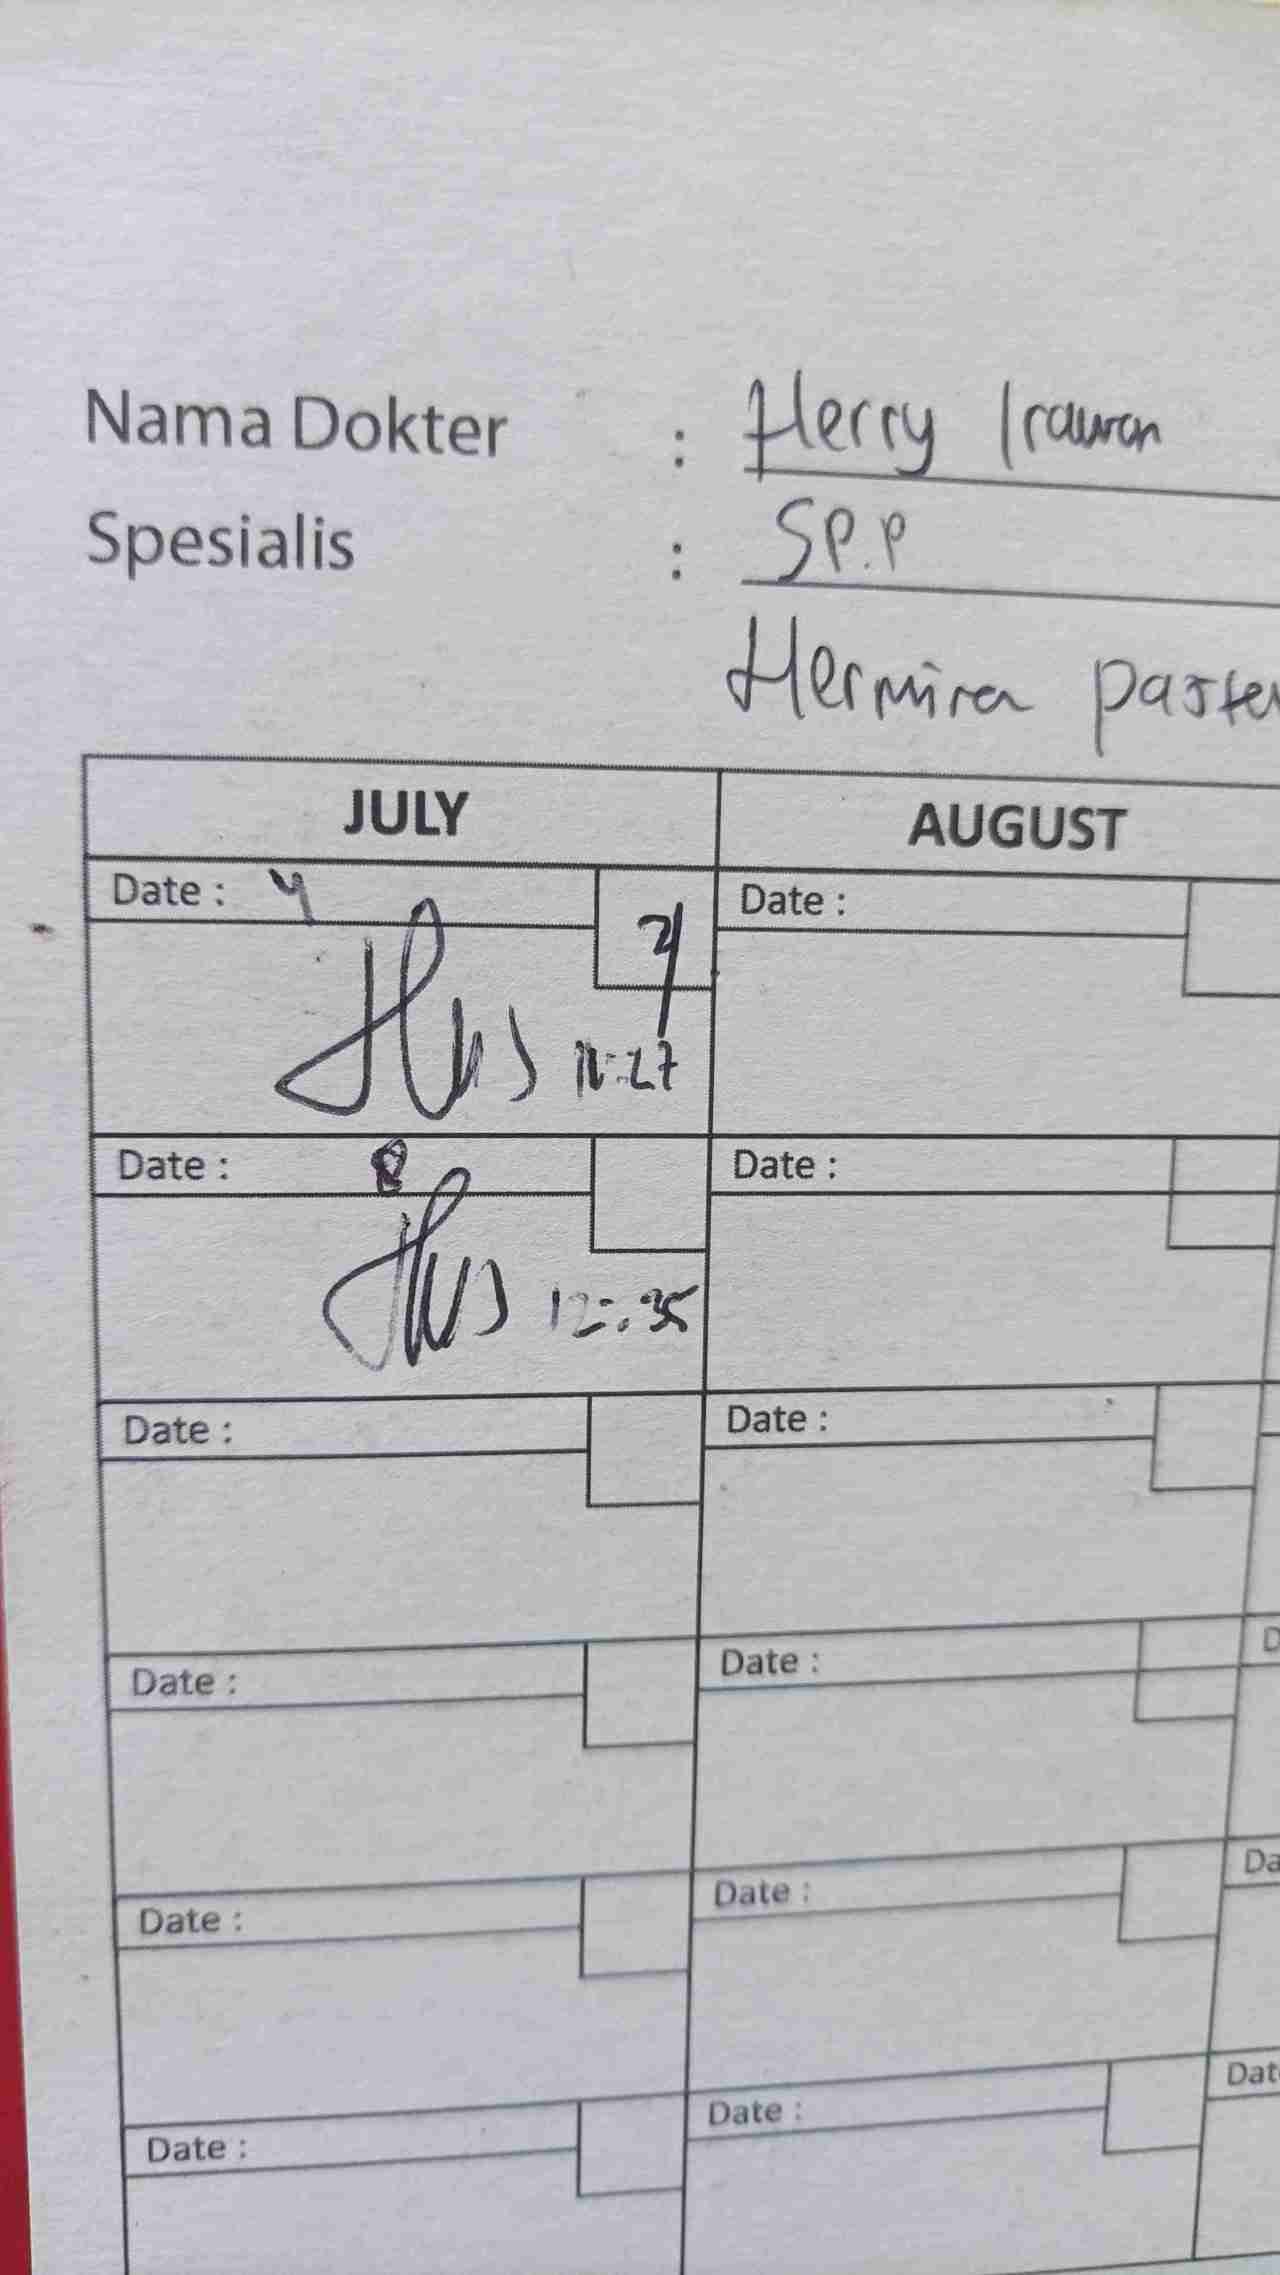 Nama Dokter : Herry Irawan
Spesialis : SP.P
Hermina paste
JULY AUGUST
Date : 4 Date :
:27
Date : 8 Date :
12:35
Date : Date :
Date : Date : D
Date : Date : Da
Date : Date : Dat